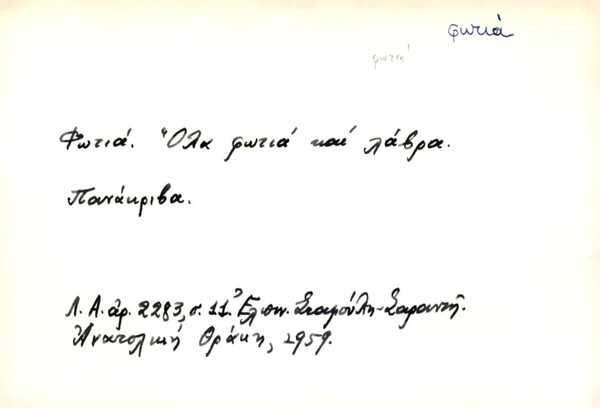 φωτιά
φωτιά
Φωτιά. Ὅλα φωτιά καί λάβρα.
Πανάκριβα.
Λ. Α. ἀρ. 2283, σ. 11. Ἐλπιν. Σταμούλη-Σαραντῆ.
Ἀνατολική Θράκη, 1959.